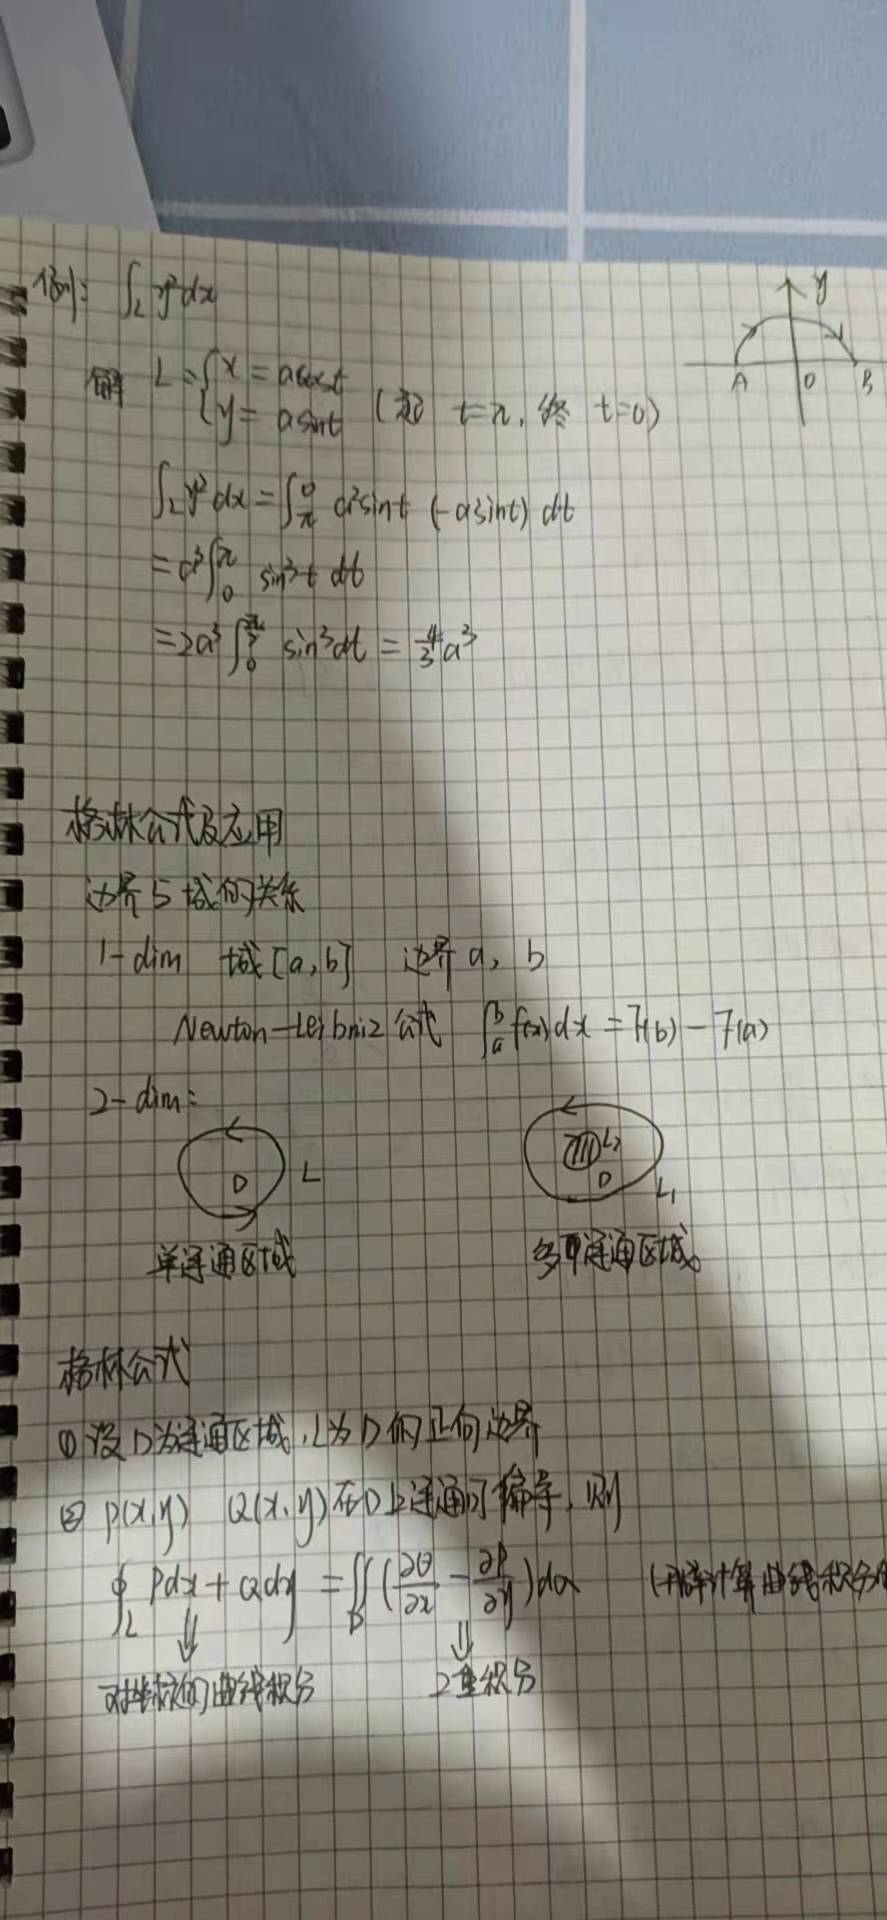 例: ∫_L y²dx
y
A O B
解 L: { x = acost
y = asint (起 t=π, 终 t=0)
∫_L y²dx = ∫_π^0 a²sin²t (-asint) dt
= a³∫_0^π sin³t dt
= 2a³ ∫_0^{π/2} sin³dt = 4/3 a³
格林公式及应用
边界与域的关系
1-dim 域[a,b] 边界 a, b
Newton-Leibniz公式 ∫_a^b f(x)dx = F(b) - F(a)
2-dim:
D L
L₂ D L₁
单连通区域 多连通区域
格林公式
① 设D为连通区域, L为D的正向边界
② P(x,y) Q(x,y)在D上连通可偏导, 则
∮_L Pdx + Qdy = ∬_D (∂Q/∂x - ∂P/∂y)dσ 计算曲线积分
⇓ ⇓
对坐标的曲线积分 2重积分